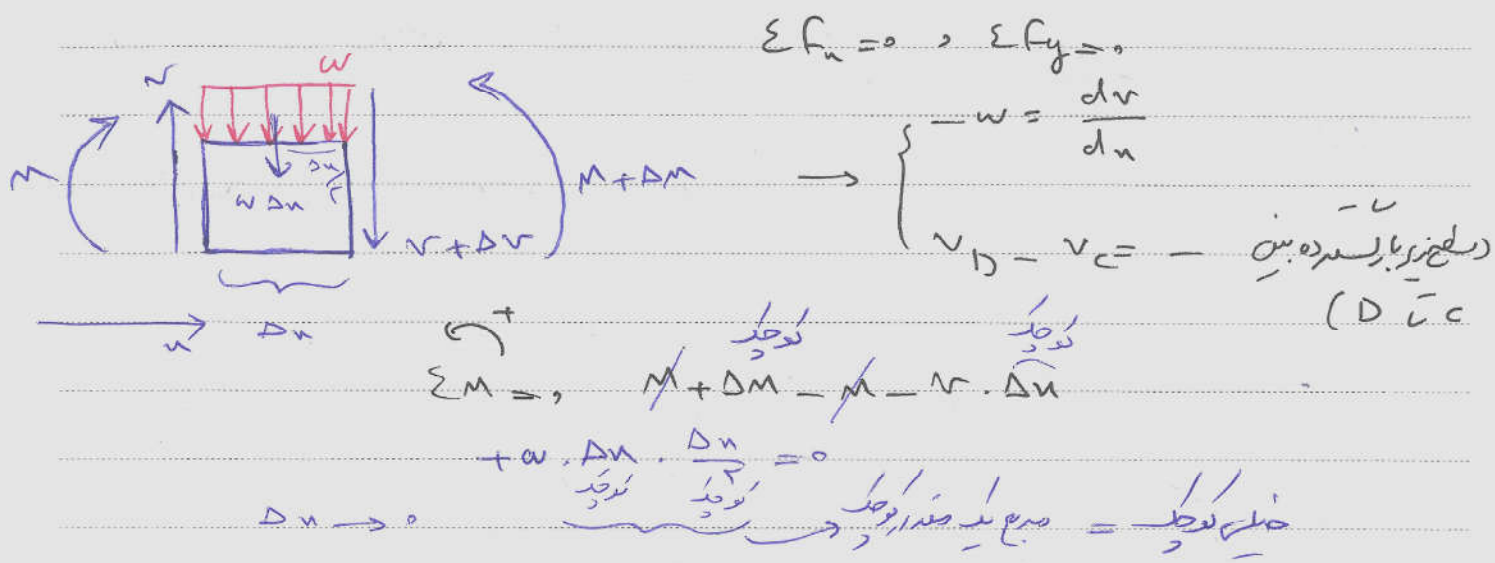 ΣFx = 0 , ΣFy = 0
w
V
M
Δx/۲
wΔx
M + ΔM
V + ΔV
Δx
x
→ { -w = dv/dx
V_D - V_C = - (سطح زیر بار گسترده بین
C تا D)
ΣM = 0, + M + ΔM - M - V · Δx
کوچک کوچک
+ w · Δx · Δx/۲ = 0
کوچک کوچک
Δx → 0 مربع یک مقدار کوچک = خیلی کوچک